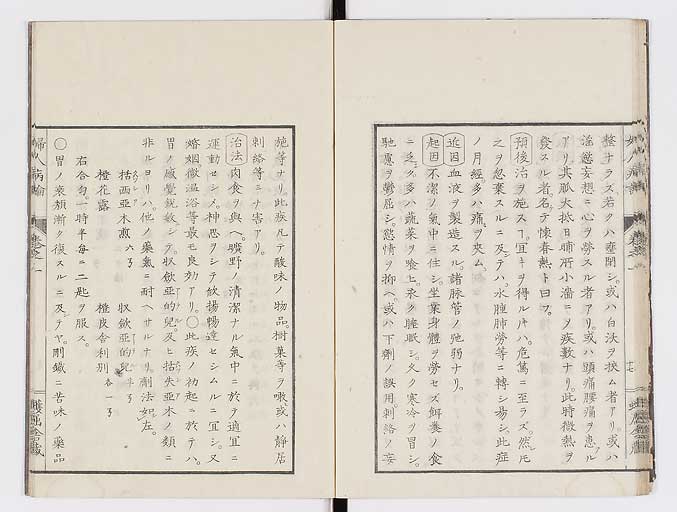 整ナラズ若クハ壅閉シ。或ハ白沃ヲ挾ム者アリ。或ハ
淫慾妄想ニ心ヲ勞スル者アリ。或ハ頭痛腰痛ヲ患ル
アリ其脈大抵日晡所小濇ニ〆疾數ナリ。此時微熱ヲ
發スル者。名テ懷春熱ト曰フ。
預後治ヲ施スヿ。宜キヲ得ル片ハ。危篤ニ至ラズ。然𪜈
之ヲ忽棄スルニ及テハ。水腫肺勞等ニ轉シ易シ。此症
ノ月經多ハ痛ヲ夾ム。
近因血液ヲ製造スル。諸脉管ノ弛弱ナリ。
起因不潔ノ氣中ニ住シ。坐業身體ヲ勞セズ餌養ノ食
ニ乏ク。多ハ蔬菜ヲ喰ヒ。永ク睡眠シ。久ク寒冷ヲ冒シ。
馳慮ヲ鬱屈シ慾情ヲ抑ヘ。或ハ下劑ノ誤用刺絡ノ妄
施等ナリ此疾凡テ酸味ノ物品。樹菓等ヲ嗽或ハ靜居
刺絡等ニテ害アリ。
治法肉食ヲ與ヘ。曠野ノ清潔ナル氣中ニ於テ適宜ニ
運動セシメ。神思ヲシテ欣揚暢達セシムルニ宜シ。又
婚姻微温浴等最モ良効アリ。〇此疾ノ初起ニ於テハ。
胃ノ感覺銳敏シテ。収歛亞的兒。及ヒ枯失亞木ノ類ニ
非ルヨリハ。他ノ藥氣ニ耐ヘサルナリ劑法如左。
枯西亞木煎 六ヲ 収歛亞的兒 半ヲ
橙花露 橙皮舎利別 各一ヲ
右合匀。一時半每ニ二匙ヲ服ス。
〇胃ノ衰頽漸ク復スルニ及テヤ。剛鐵ニ苦味ノ藥品
婦人病論 卷之一